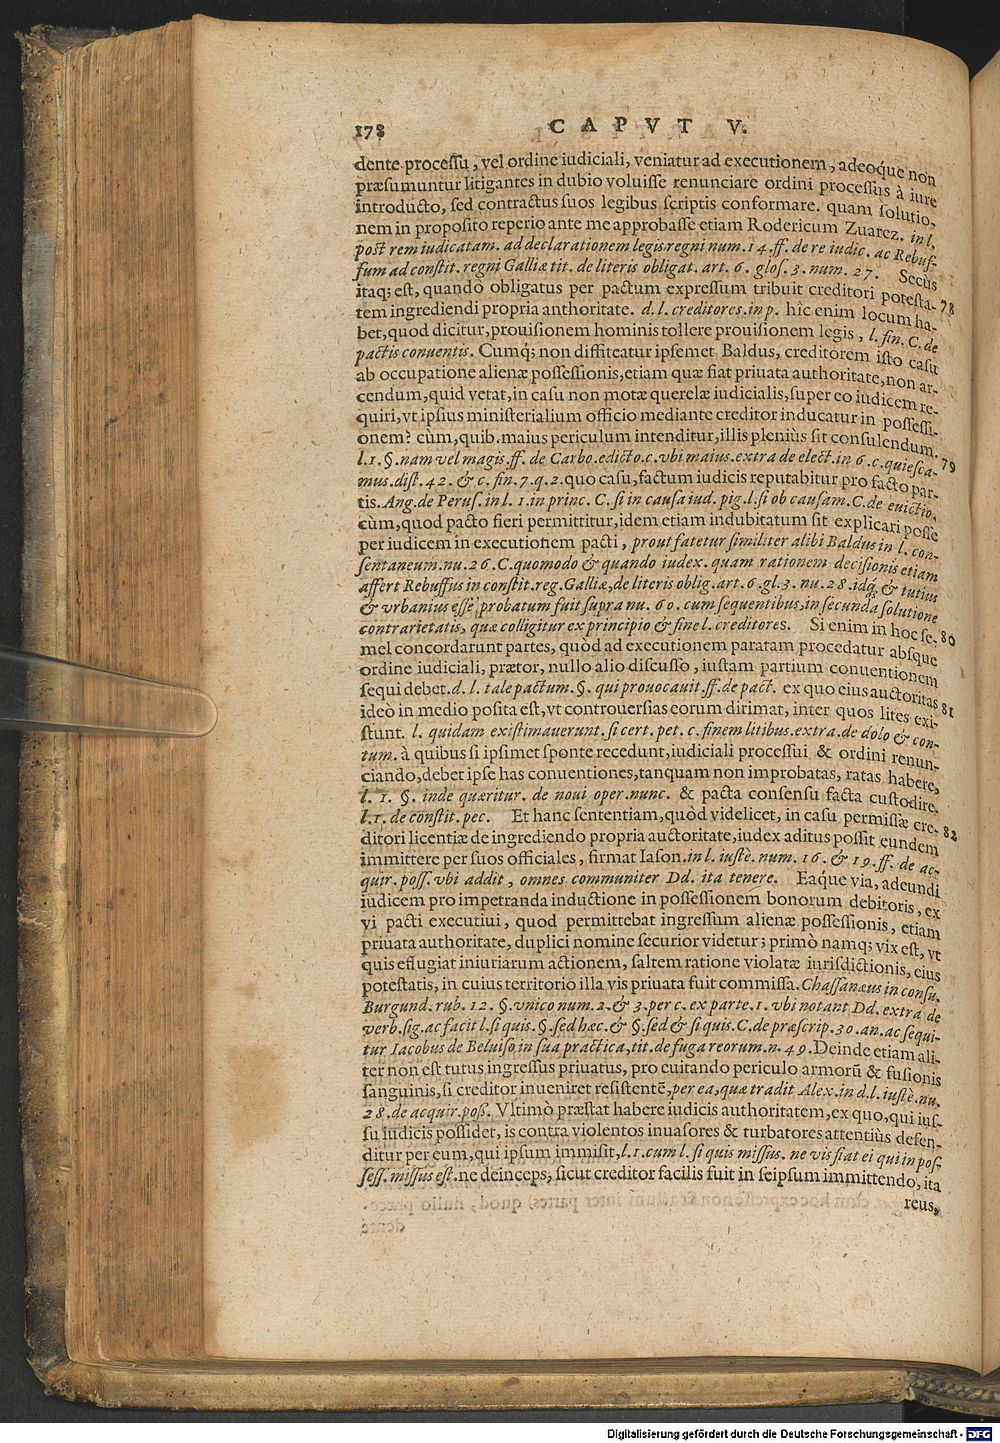 178 CAPVT V.
dente processu, vel ordine iudiciali, veniatur ad executionem, adeoq́ue non
præsumuntur litigantes in dubio voluisse renunciare ordini processus à iure
introducto, sed contractus suos legibus scriptis conformare. quam solutio-
nem in proposito reperio ante me approbasse etiam Rodericum Zuarez. in l.
post rem iudicatam. ad declarationem legis regni num. 14. ff. de re iudic. ac Rebuf-
fum ad constit. regni Galliæ tit. de literis obligat. art. 6. glos. 3. num. 27. Secùs
itaq; est, quando obligatus per pactum expressum tribuit creditori potesta- 78
tem ingrediendi propria anthoritate. d. l. creditores. in p. hîc enim locum ha-
bet, quod dicitur, prouisionem hominis tollere prouisionem legis, l. fin. C. de
pactis conuentis. Cumq́; non diffiteatur ipsemet Baldus, creditorem isto casu
ab occupatione alienæ possessionis, etiam quæ fiat priuata authoritate, non ar-
cendum, quid vetat, in casu non motæ querelæ iudicialis, super eo iudicem re-
quiri, vt ipsius ministerialium officio mediante creditor inducatur in possessi-
onem? cùm, quib. maius periculum intenditur, illis pleniùs sit consulendum.
l. 1. §. nam vel magis. ff. de Carbo. edicto. c. vbi maius. extra de elect. in 6. c. quiesca- 79
mus. dist. 42. & c. fin. 7. q. 2. quo casu, factum iudicis reputabitur pro facto par-
tis. Ang. de Perus. in l. 1. in princ. C. si in causa iud. pig. l. si ob causam. C. de euictio.
cùm, quod pacto fieri permittitur, idem etiam indubitatum sit explicari posse
per iudicem in executionem pacti, prout fatetur similiter alibi Baldus in l. con-
sentaneum. nu. 26. C. quomodo & quando iudex. quam rationem decisionis etiam
affert Rebuffus in constit. reg. Galliæ, de literis oblig. art. 6. gl. 3. nu. 28. idq́; & tutius
& vrbanius esse, probatum fuit supra nu. 60. cum sequentibus, in secunda solutione
contrarietatis, quæ colligitur ex principio & fine l. creditores. Si enim in hoc se- 80
mel concordarunt partes, quòd ad executionem paratam procedatur absque
ordine iudiciali, prætor, nullo alio discusso, iustam partium conuentionem
sequi debet. d. l. tale pactum. §. qui prouocauit. ff. de pact. ex quo eius auctoritas 81
ideò in medio posita est, vt controuersias eorum dirimat, inter quos lites exi-
stunt. l. quidam existimauerunt. si cert. pet. c. finem litibus. extra. de dolo & con-
tum. à quibus si ipsimet sponte recedunt, iudiciali processui & ordini renun-
ciando, debet ipse has conuentiones, tanquam non improbatas, ratas habere,
l. 1. §. inde quæritur. de noui oper. nunc. & pacta consensu facta custodire.
l. 1. de constit. pec. Et hanc sententiam, quòd videlicet, in casu permissæ cre- 82
ditori licentiæ de ingrediendo propria auctoritate, iudex aditus possit eundem
immittere per suos officiales, firmat Iason. in l. iustè. num. 16. & 19. ff. de ac-
quir. poss. vbi addit, omnes communiter Dd. ita tenere. Eaque via, adeundi
iudicem pro impetranda inductione in possessionem bonorum debitoris, ex
vi pacti executiui, quod permittebat ingressum alienæ possessionis, etiam
priuata authoritate, duplici nomine securior videtur; primò namq; vix est, vt
quis effugiat iniuriarum actionem, saltem ratione violatæ iurisdictionis, eius
potestatis, in cuius territorio illa vis priuata fuit commissa. Chassanæus in consu.
Burgund. rub. 12. §. vnico num. 2. & 3. per c. ex parte. 1. vbi notant Dd. extra de
verb. sig. ac facit l. si quis. §. sed hæc. & §. sed & si quis. C. de præscrip. 30. an. ac sequi-
tur Iacobus de Beluiso in sua practica, tit. de fuga reorum. n. 49. Deinde etiam ali-
ter non est tutus ingressus priuatus, pro euitando periculo armorũ & fusionis
sanguinis, si creditor inueniret resistentẽ, per ea, quæ tradit Alex. in d. l. iustè. nu.
28. de acquir. poss. Vltimò præstat habere iudicis authoritatem, ex quo, qui ius-
su iudicis possidet, is contra violentos inuasores & turbatores attentiùs defen-
ditur per eum, qui ipsum immisit, l. 1. cum l. si quis missus. ne vis fiat ei qui in pos-
sess. missus est. ne deinceps, sicut creditor facilis fuit in seipsum immittendo, ita
reus,
Digitalisierung gefördert durch die Deutsche Forschungsgemeinschaft - DFG